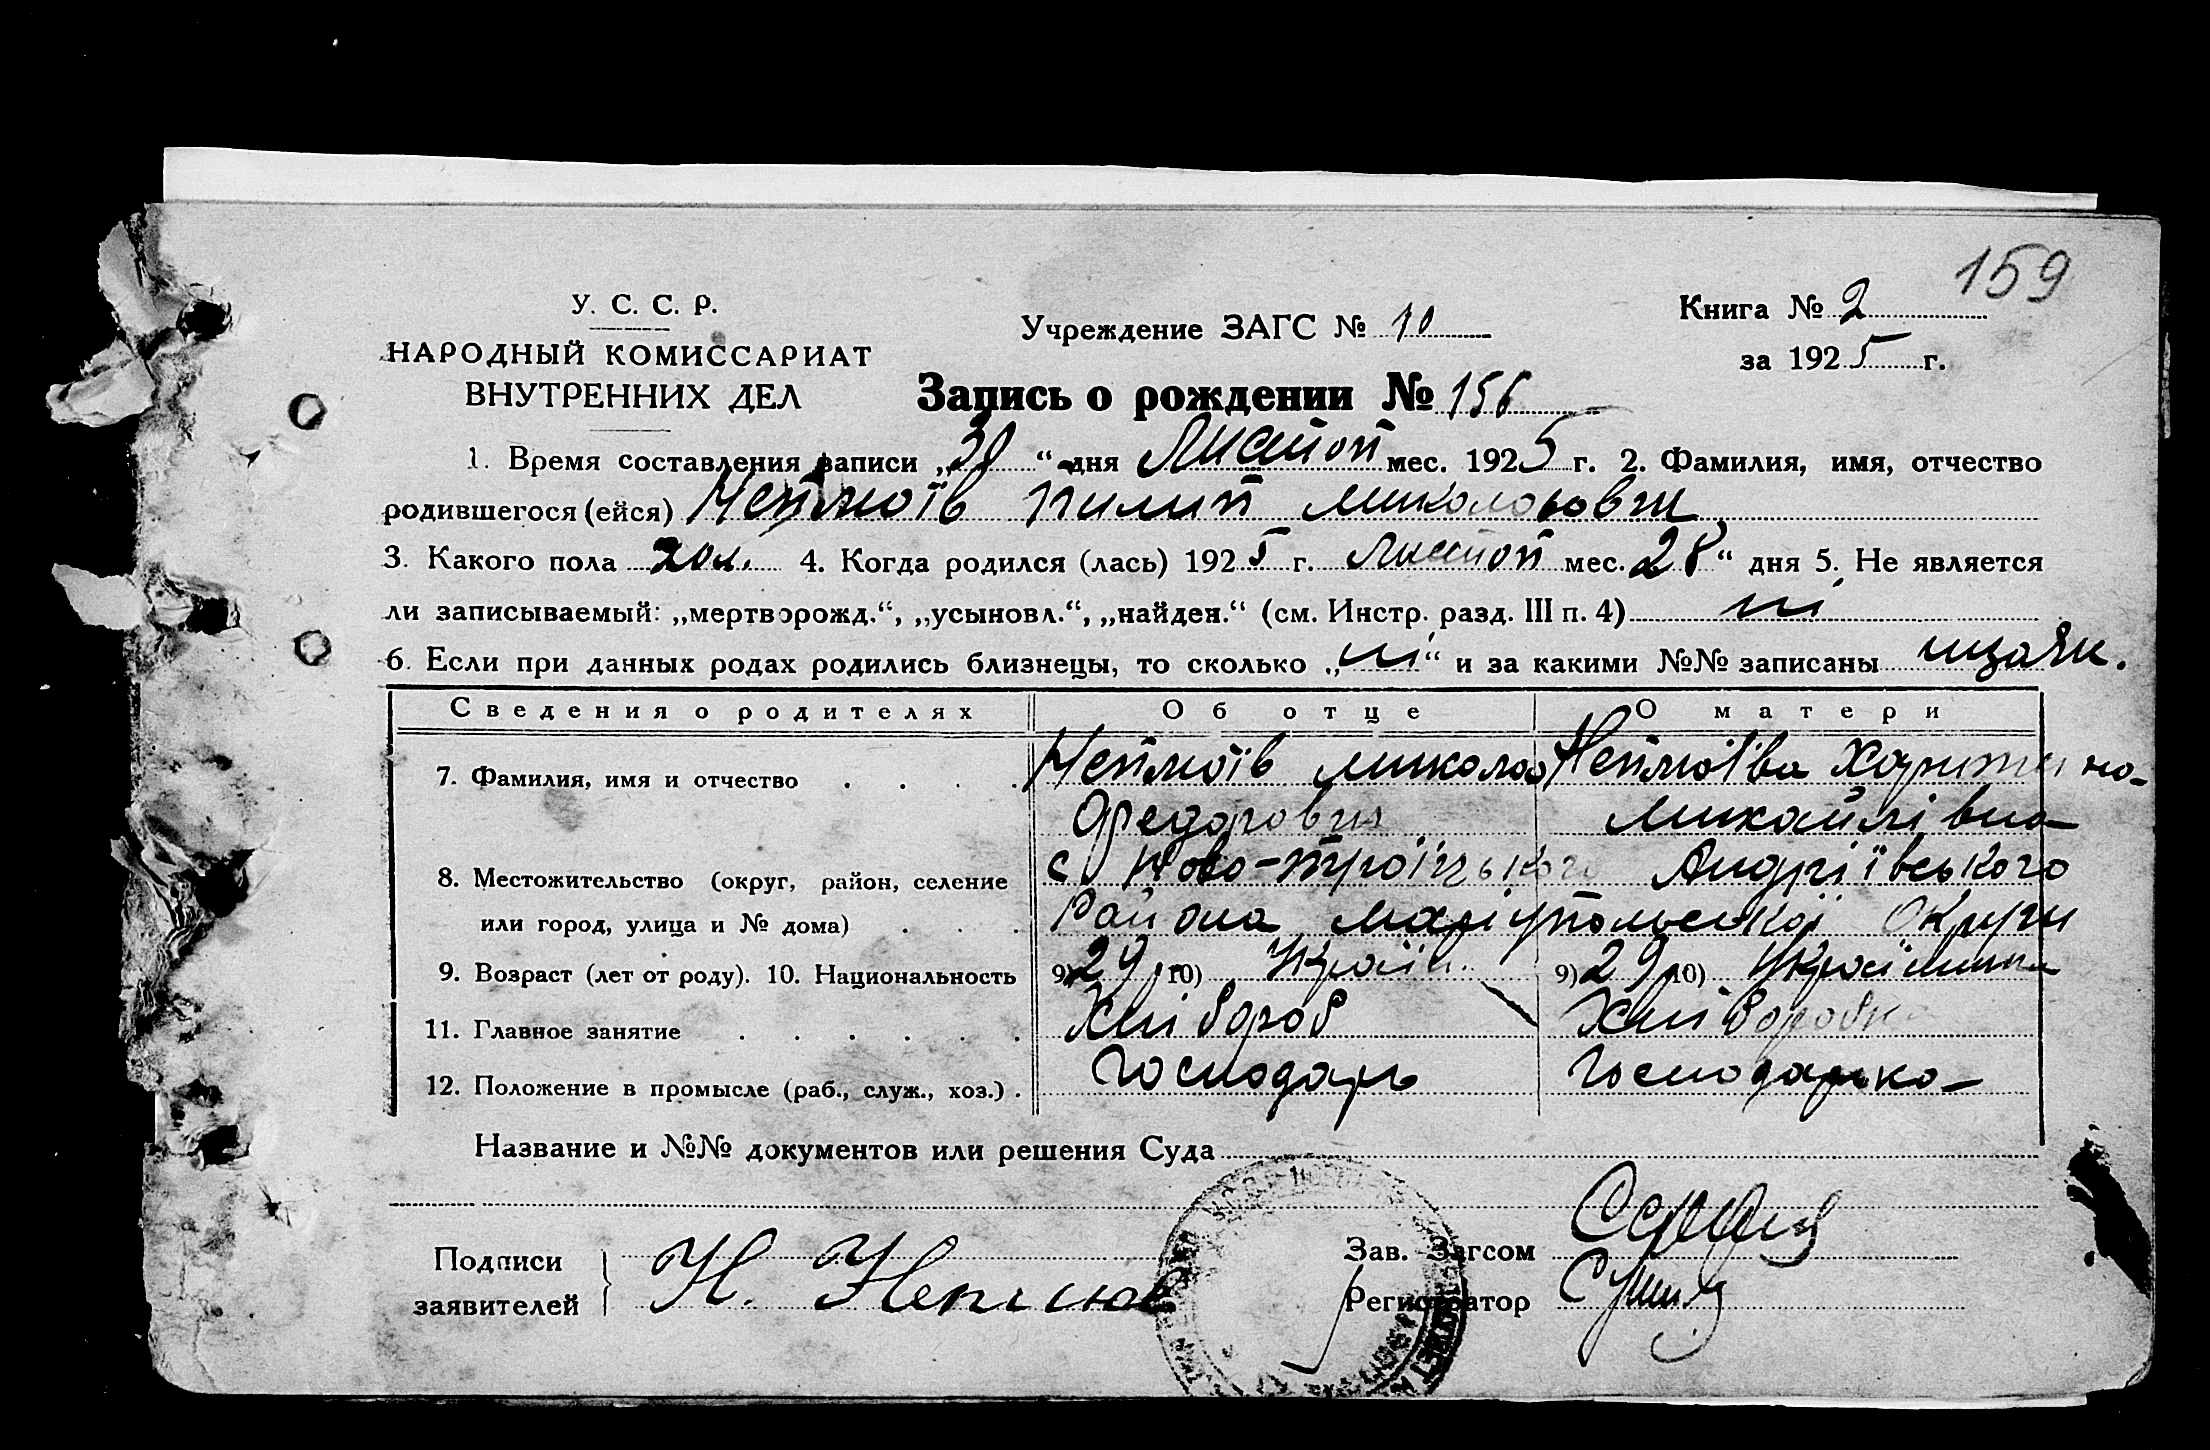 159
У. С. С. Р.
НАРОДНЫЙ КОМИССАРИАТ
ВНУТРЕННИХ ДЕЛ
Учреждение ЗАГС № 10
Книга № 2
за 1925 г.
Запись о рождении № 156
1. Время составления записи „30“ дня Листоп мес. 1925 г. 2. Фамилия, имя, отчество
родившегося (ейся) Неплюїв Пилип
3. Какого пола чол. 4. Когда родился (лась) 1925 г. Листоп мес. 28“ дня 5. Не является
ли записываемый: „мертворожд.“, „усыновл.“, „найден.“ (см. Инстр. разд. III п. 4) ні
6. Если при данных родах родились близнецы, то сколько „ні“ и за какими №№ записаны
Сведения о родителях Об отце О матери
7. Фамилия, имя и отчество . . . . Неплюїв Микола Неплюїва Харитина
Федорович Михайлівна
8. Местожительство (округ, район, селение с Ново-Троїцького Андріївського
или город, улица и № дома) . . . Района Маріупольської Округи
9. Возраст (лет от роду). 10. Национальность 9) 29 10) Україн. 9) 29 10) Українка
11. Главное занятие . . . . . . Хлібороб Хліборобка
12. Положение в промысле (раб., служ., хоз.) . Господарь Господарька
Название и №№ документов или решения Суда
Подписи
заявителей
Н. Неплюев
Зав. Загсом
Регистратор